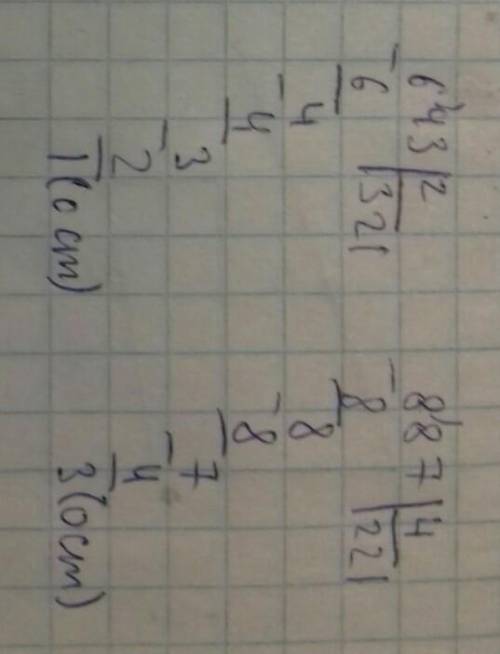 643 | 2
- 6 | 321
4
- 4
3
- 2
1 (ост)
887 | 4
- 8 | 221
8
- 8
7
- 4
3 (ост)